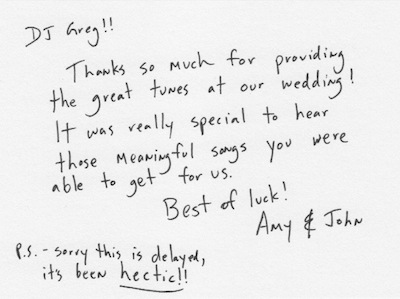 DJ Greg!!
Thanks so much for providing
the great tunes at our wedding!
It was really special to hear
those meaningful songs you were
able to get for us.
Best of luck!
Amy & John
P.S. - sorry this is delayed,
it's been hectic!!